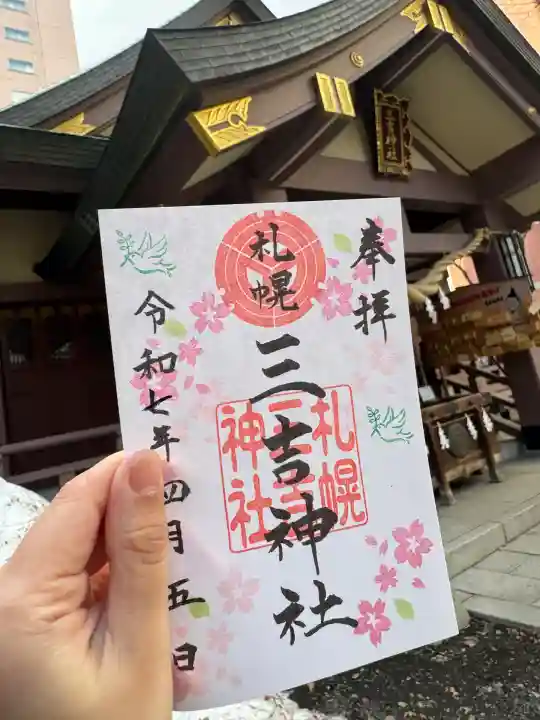 奉拝
札幌三吉神社
札幌
三吉
神社
令和七年四月五日
三吉神社